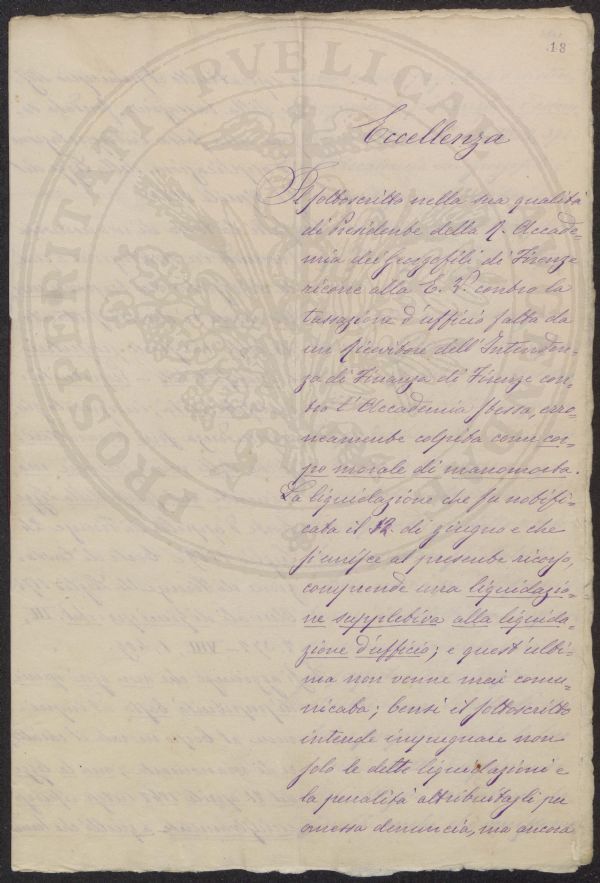 18
Eccellenza
Il sottoscritto nella sua qualità
di Presidente della R. Accade-
mia dei Georgofili di Firenze
ricorre alla E. V. contro la
tassazione d'ufficio fatta da
un Ricevitore dell'Intenden-
za di Finanza di Firenze con-
tro l'Accademia stessa, erro-
neamente colpita come cor-
po morale di manomorta.
La liquidazione che fu notifi-
cata il 12 di giugno e che
si unisce al presente ricorso,
comprende una liquidazio-
ne suppletiva alla liquida-
zione d'ufficio; e quest'ulti-
ma non venne mai comu-
nicata; bensì il sottoscritto
intende impugnare non
solo le dette liquidazioni e
la penalità attribuitagli per
omessa denuncia, ma ancora
PROSPERITATI PVBLICAE